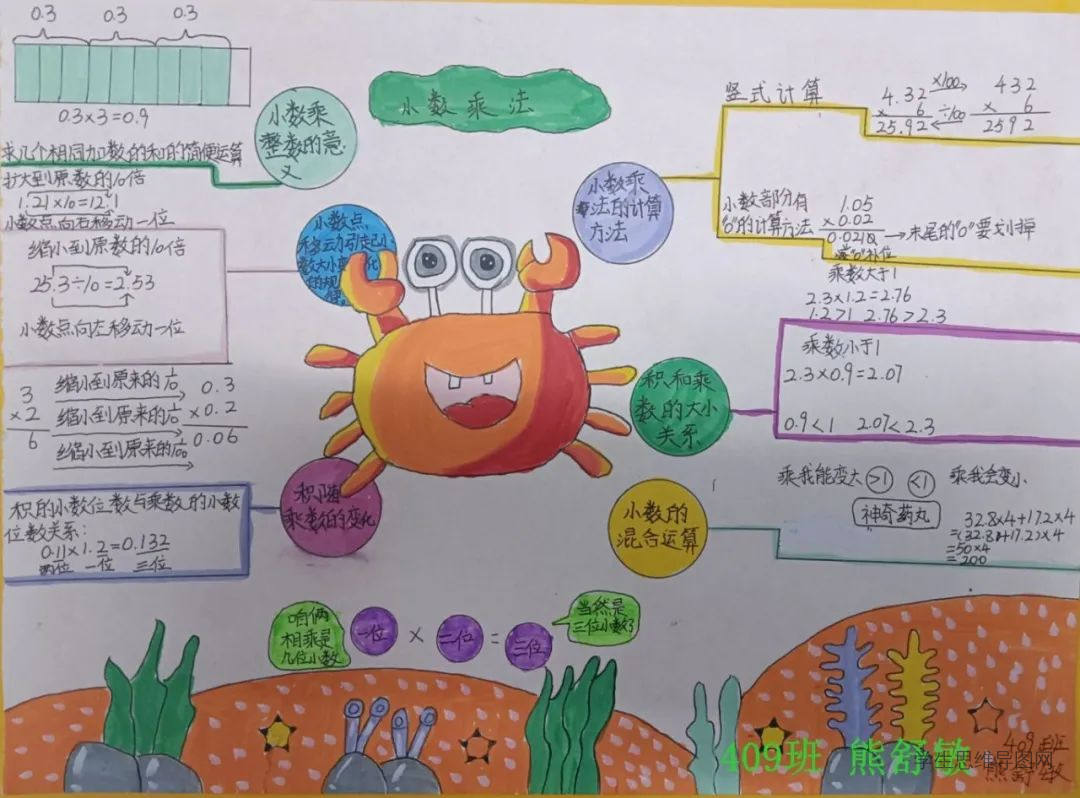 小数乘法
0.3 0.3 0.3
0.3×3=0.9
小数乘
整数的意
义
求几个相同加数的和的简便运算
扩大到原数的10倍
1.21×10=12.1
小数点向右移动一位
缩小到原数的10倍
25.3÷10=2.53
小数点向左移动一位
小数点
移动引起小
数大小变化
的规
律
3 缩小到原来的1/10 0.3
×2 缩小到原来的1/10 ×0.2
6 缩小到原来的1/100 0.06
积随
乘数的变化
积的小数位数与乘数的小数
位数关系:
0.11×1.2=0.132
两位 一位 三位
小数乘
法的计算
方法
竖式计算
4.32 ×100 432
× 6 ÷100 × 6
25.92 2592
小数部分有
"0"的计算方法
1.05
×0.02
0.0210 → 末尾的"0"要划掉
"0"补位
积和乘
数的大小
关系
乘数大于1
2.3×1.2=2.76
1.2>1 2.76>2.3
乘数小于1
2.3×0.9=2.07
0.9<1 2.07<2.3
小数的
混合运算
乘我能变大 >1 <1 乘我会变小
神奇药丸
32.8×4+17.2×4
=(32.8+17.2)×4
=50×4
=200
咱俩
相乘是
几位小数
一位 × 二位 = 三位
当然是
三位小数了
409班
熊舒敏
409班 熊舒敏
学生思维导图网